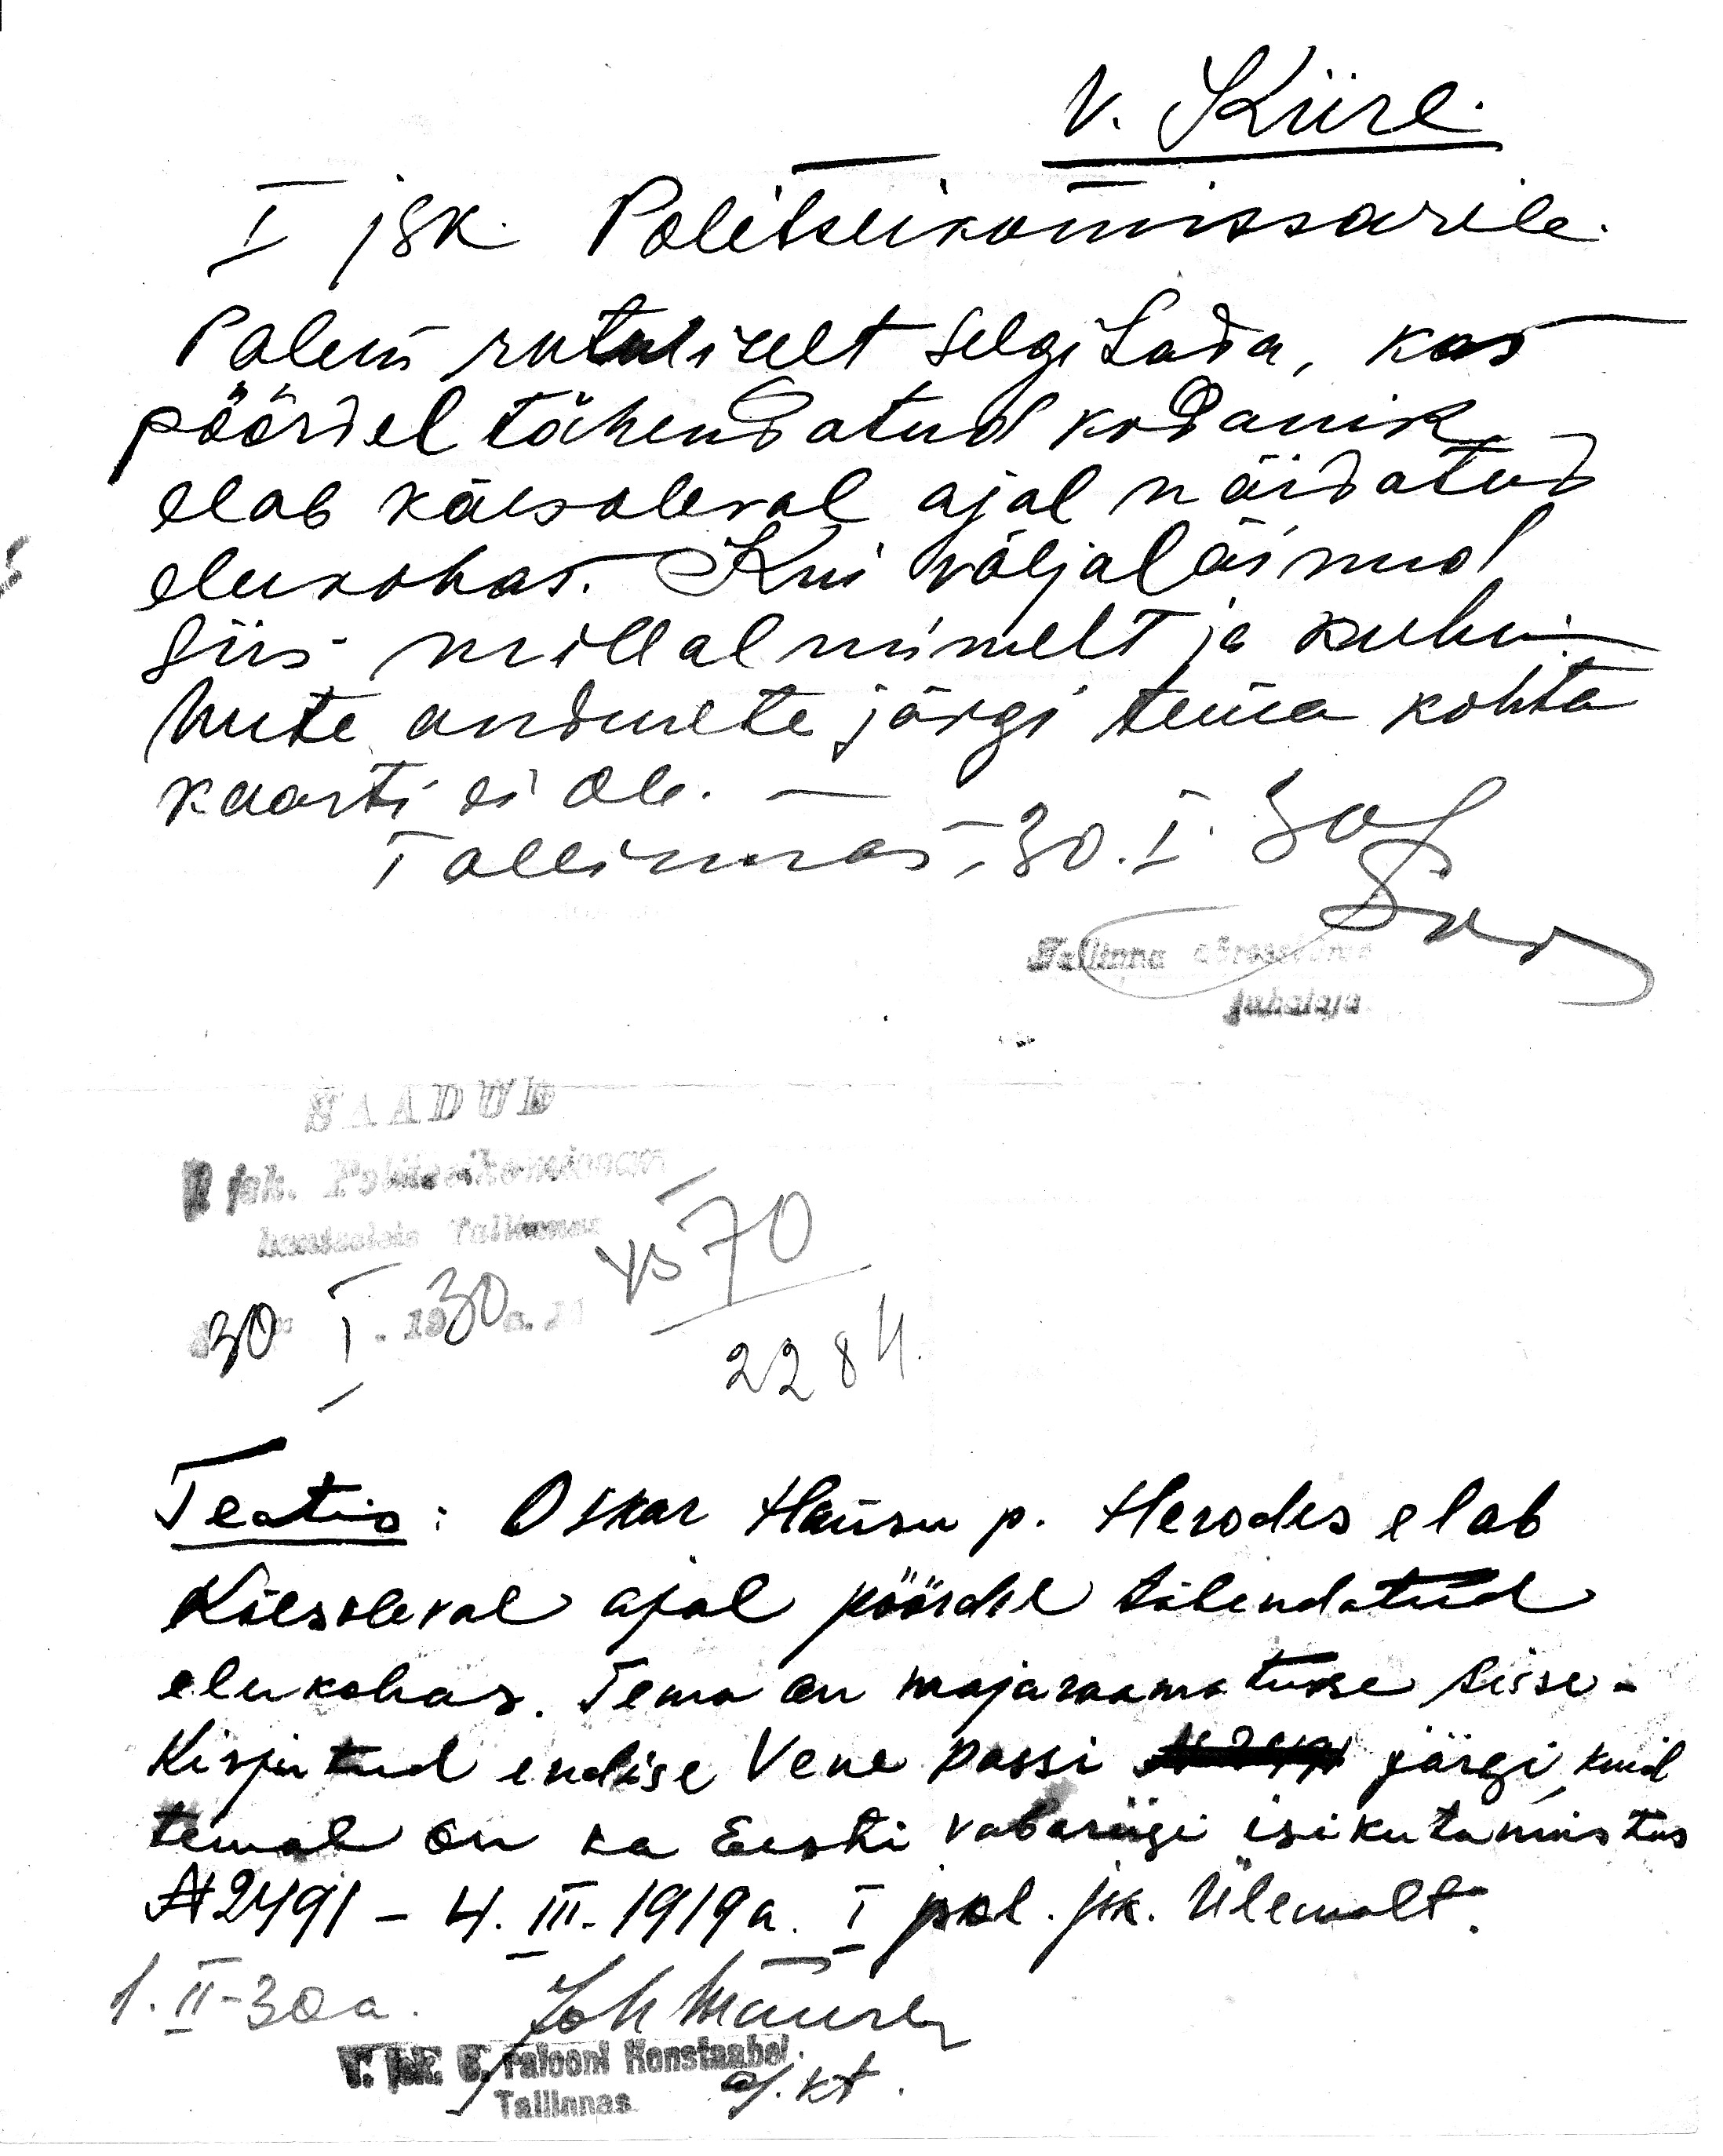 V. Kiire.
I jsk. Politseikomissarile.
Palun rutuliselt selgitada, kas
pöördel tähendatud kodanik
elab käesoleval ajal näidatud
elukohas. Kui väljaläinud
siis millal nimelt ja kuhu.
Mute andmete järgi tema kohta
kaarti ei ole. —
Tallinnas, 30. I. 30
Tallinna aadressbüroo
juhataja
SAADUD
I jsk. Politseikomissari
Tallinnas
30 I. 1930 a.
4570
2284.
Teatis: Oskar Hansu p. Herodes elab
Käesoleval ajal pöördel tähendatud
elukohas. Tema on majaraamatusse sisse-
kirjutud endise Vene passi järgi, kuid
temal on ka Eesti vabariigi isikutunnistus
№ 2491 – 4. III. 1919 a. I pol. jsk. Ülemalt.
1. II-30 a.
I. jsk. 6. rajooni Konstaabel
aj. kt.
Tallinnas